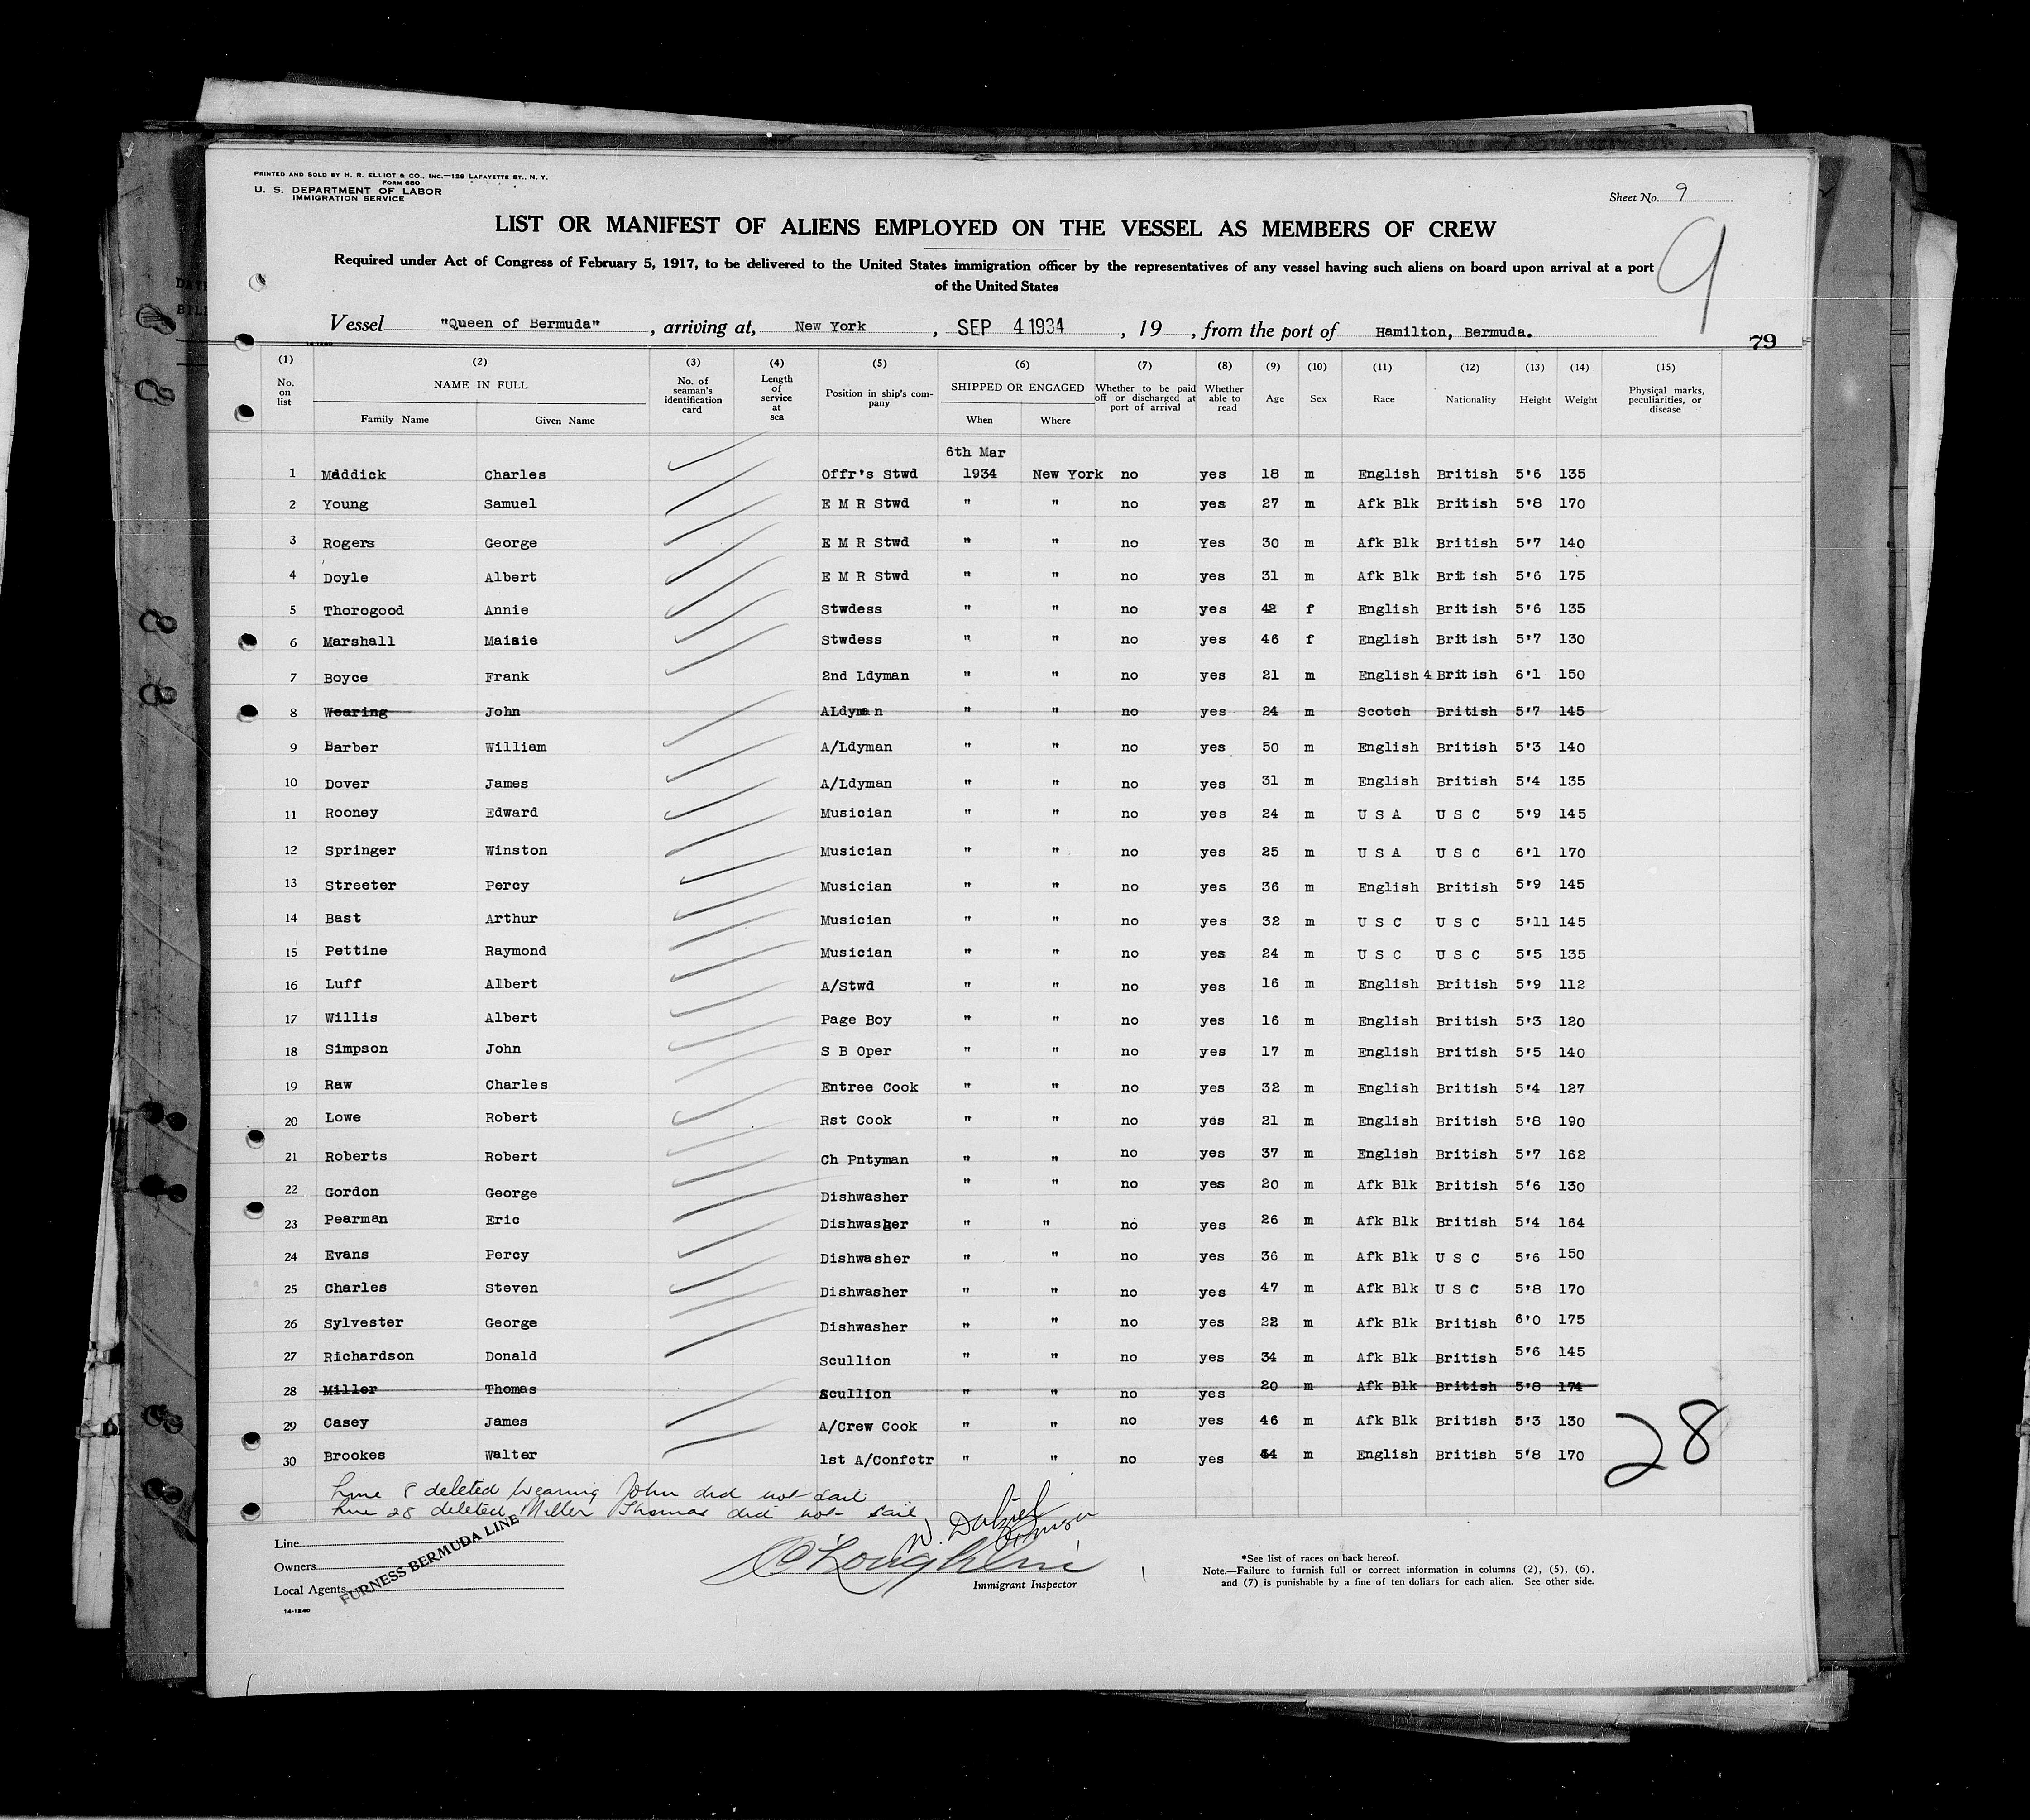 PRINTED AND SOLD BY H. R. ELLIOT & CO., INC.—129 LAFAYETTE ST., N. Y.
FORM 680
U. S. DEPARTMENT OF LABOR
IMMIGRATION SERVICE
Sheet No. 9
9
LIST OR MANIFEST OF ALIENS EMPLOYED ON THE VESSEL AS MEMBERS OF CREW
Required under Act of Congress of February 5, 1917, to be delivered to the United States immigration officer by the representatives of any vessel having such aliens on board upon arrival at a port
of the United States
Vessel "Queen of Bermuda", arriving at, New York, SEP 4 1934, 19 , from the port of Hamilton, Bermuda.
79
(1) (2) (3) (4) (5) (6) (7) (8) (9) (10) (11) (12) (13) (14) (15)
No. on list NAME IN FULL Family Name Given Name No. of seaman's identification card Length of service at sea Position in ship's company SHIPPED OR ENGAGED When Where Whether to be paid off or discharged at port of arrival Whether able to read Age Sex Race Nationality Height Weight Physical marks, peculiarities, or disease
6th Mar
1 Maddick Charles Offr's Stwd 1934 New York no yes 18 m English British 5'6 135
2 Young Samuel E M R Stwd " " no yes 27 m Afk Blk British 5'8 170
3 Rogers George E M R Stwd " " no Yes 30 m Afk Blk British 5'7 140
4 Doyle Albert E M R Stwd " " no yes 31 m Afk Blk British 5'6 175
5 Thorogood Annie Stwdess " " no yes 42 f English British 5'6 135
6 Marshall Maisie Stwdess " " no yes 46 f English British 5'7 130
7 Boyce Frank 2nd Ldyman " " no yes 21 m English 4 British 6'1 150
8 Wearing John ALdyman " " no yes 24 m Scotch British 5'7 145
9 Barber William A/Ldyman " " no yes 50 m English British 5'3 140
10 Dover James A/Ldyman " " no yes 31 m English British 5'4 135
11 Rooney Edward Musician " " no yes 24 m U S A U S C 5'9 145
12 Springer Winston Musician " " no yes 25 m U S A U S C 6'1 170
13 Streeter Percy Musician " " no yes 36 m English British 5'9 145
14 Bast Arthur Musician " " no yes 32 m U S C U S C 5'11 145
15 Pettine Raymond Musician " " no yes 24 m U S C U S C 5'5 135
16 Luff Albert A/Stwd " " no yes 16 m English British 5'9 112
17 Willis Albert Page Boy " " no yes 16 m English British 5'3 120
18 Simpson John S B Oper " " no yes 17 m English British 5'5 140
19 Raw Charles Entree Cook " " no yes 32 m English British 5'4 127
20 Lowe Robert Rst Cook " " no yes 21 m English British 5'8 190
21 Roberts Robert Ch Pntyman " " no yes 37 m English British 5'7 162
22 Gordon George Dishwasher " " no yes 20 m Afk Blk British 5'6 130
23 Pearman Eric Dishwasher " " no yes 26 m Afk Blk British 5'4 164
24 Evans Percy Dishwasher " " no yes 36 m Afk Blk U S C 5'6 150
25 Charles Steven Dishwasher " " no yes 47 m Afk Blk U S C 5'8 170
26 Sylvester George Dishwasher " " no yes 22 m Afk Blk British 6'0 175
27 Richardson Donald Scullion " " no yes 34 m Afk Blk British 5'6 145
28 Miller Thomas Scullion " " no yes 20 m Afk Blk British 5'8 174
29 Casey James A/Crew Cook " " no yes 46 m Afk Blk British 5'3 130
30 Brookes Walter 1st A/Confctr " " no yes m English British 5'8 170
28
Line 8 deleted Wearing John did not sail
Line 28 deleted Miller Thomas did not sail
W. Dalziel
Purser
Line
Owners
Local Agents
FURNESS BERMUDA LINE
14-1240
O'Loughlin
Immigrant Inspector
*See list of races on back hereof.
Note.—Failure to furnish full or correct information in columns (2), (5), (6),
and (7) is punishable by a fine of ten dollars for each alien. See other side.